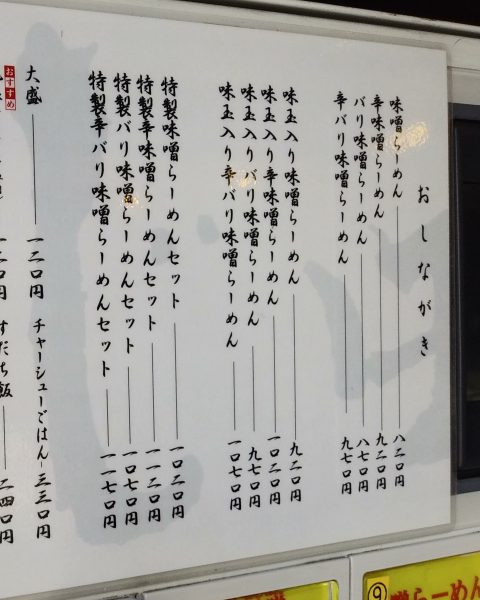 おしながき
味噌らーめん 八二〇円
辛味噌らーめん 九二〇円
バリ味噌らーめん 八七〇円
辛バリ味噌らーめん 九七〇円
味玉入り味噌らーめん 九二〇円
味玉入り辛味噌らーめん 一〇二〇円
味玉入りバリ味噌らーめん 九七〇円
味玉入り辛バリ味噌らーめん 一〇七〇円
特製味噌らーめんセット 一〇二〇円
特製辛味噌らーめんセット 一一二〇円
特製バリ味噌らーめんセット 一〇七〇円
特製辛バリ味噌らーめんセット 一一七〇円
大盛 一二〇円
チャーシューごはん 三三〇円
おすすめ
一二〇円
すだち飯 二四〇円
⑨
噌らーめん